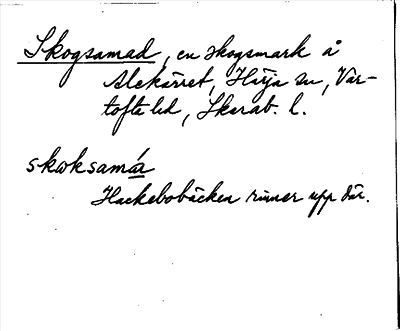 Skogsamad, en skogsmark å
Alekärret, Härja sn, Var-
tofta hd, Skarab. l.
skoksamár
Hackebobäcken rinner upp där.